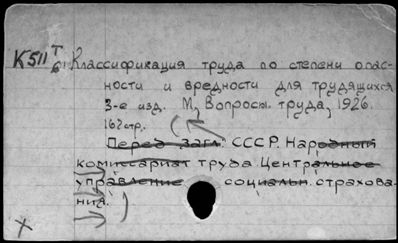 К511 Т/6 Классификация труда по степени опас-
ности и вредности для трудящихся
3-е изд. М, Вопросы труда, 1926.
162 стр.
Перед загл. СССР. Народный
комиссариат труда. Центральное
управление социальн. страхова-
ния.